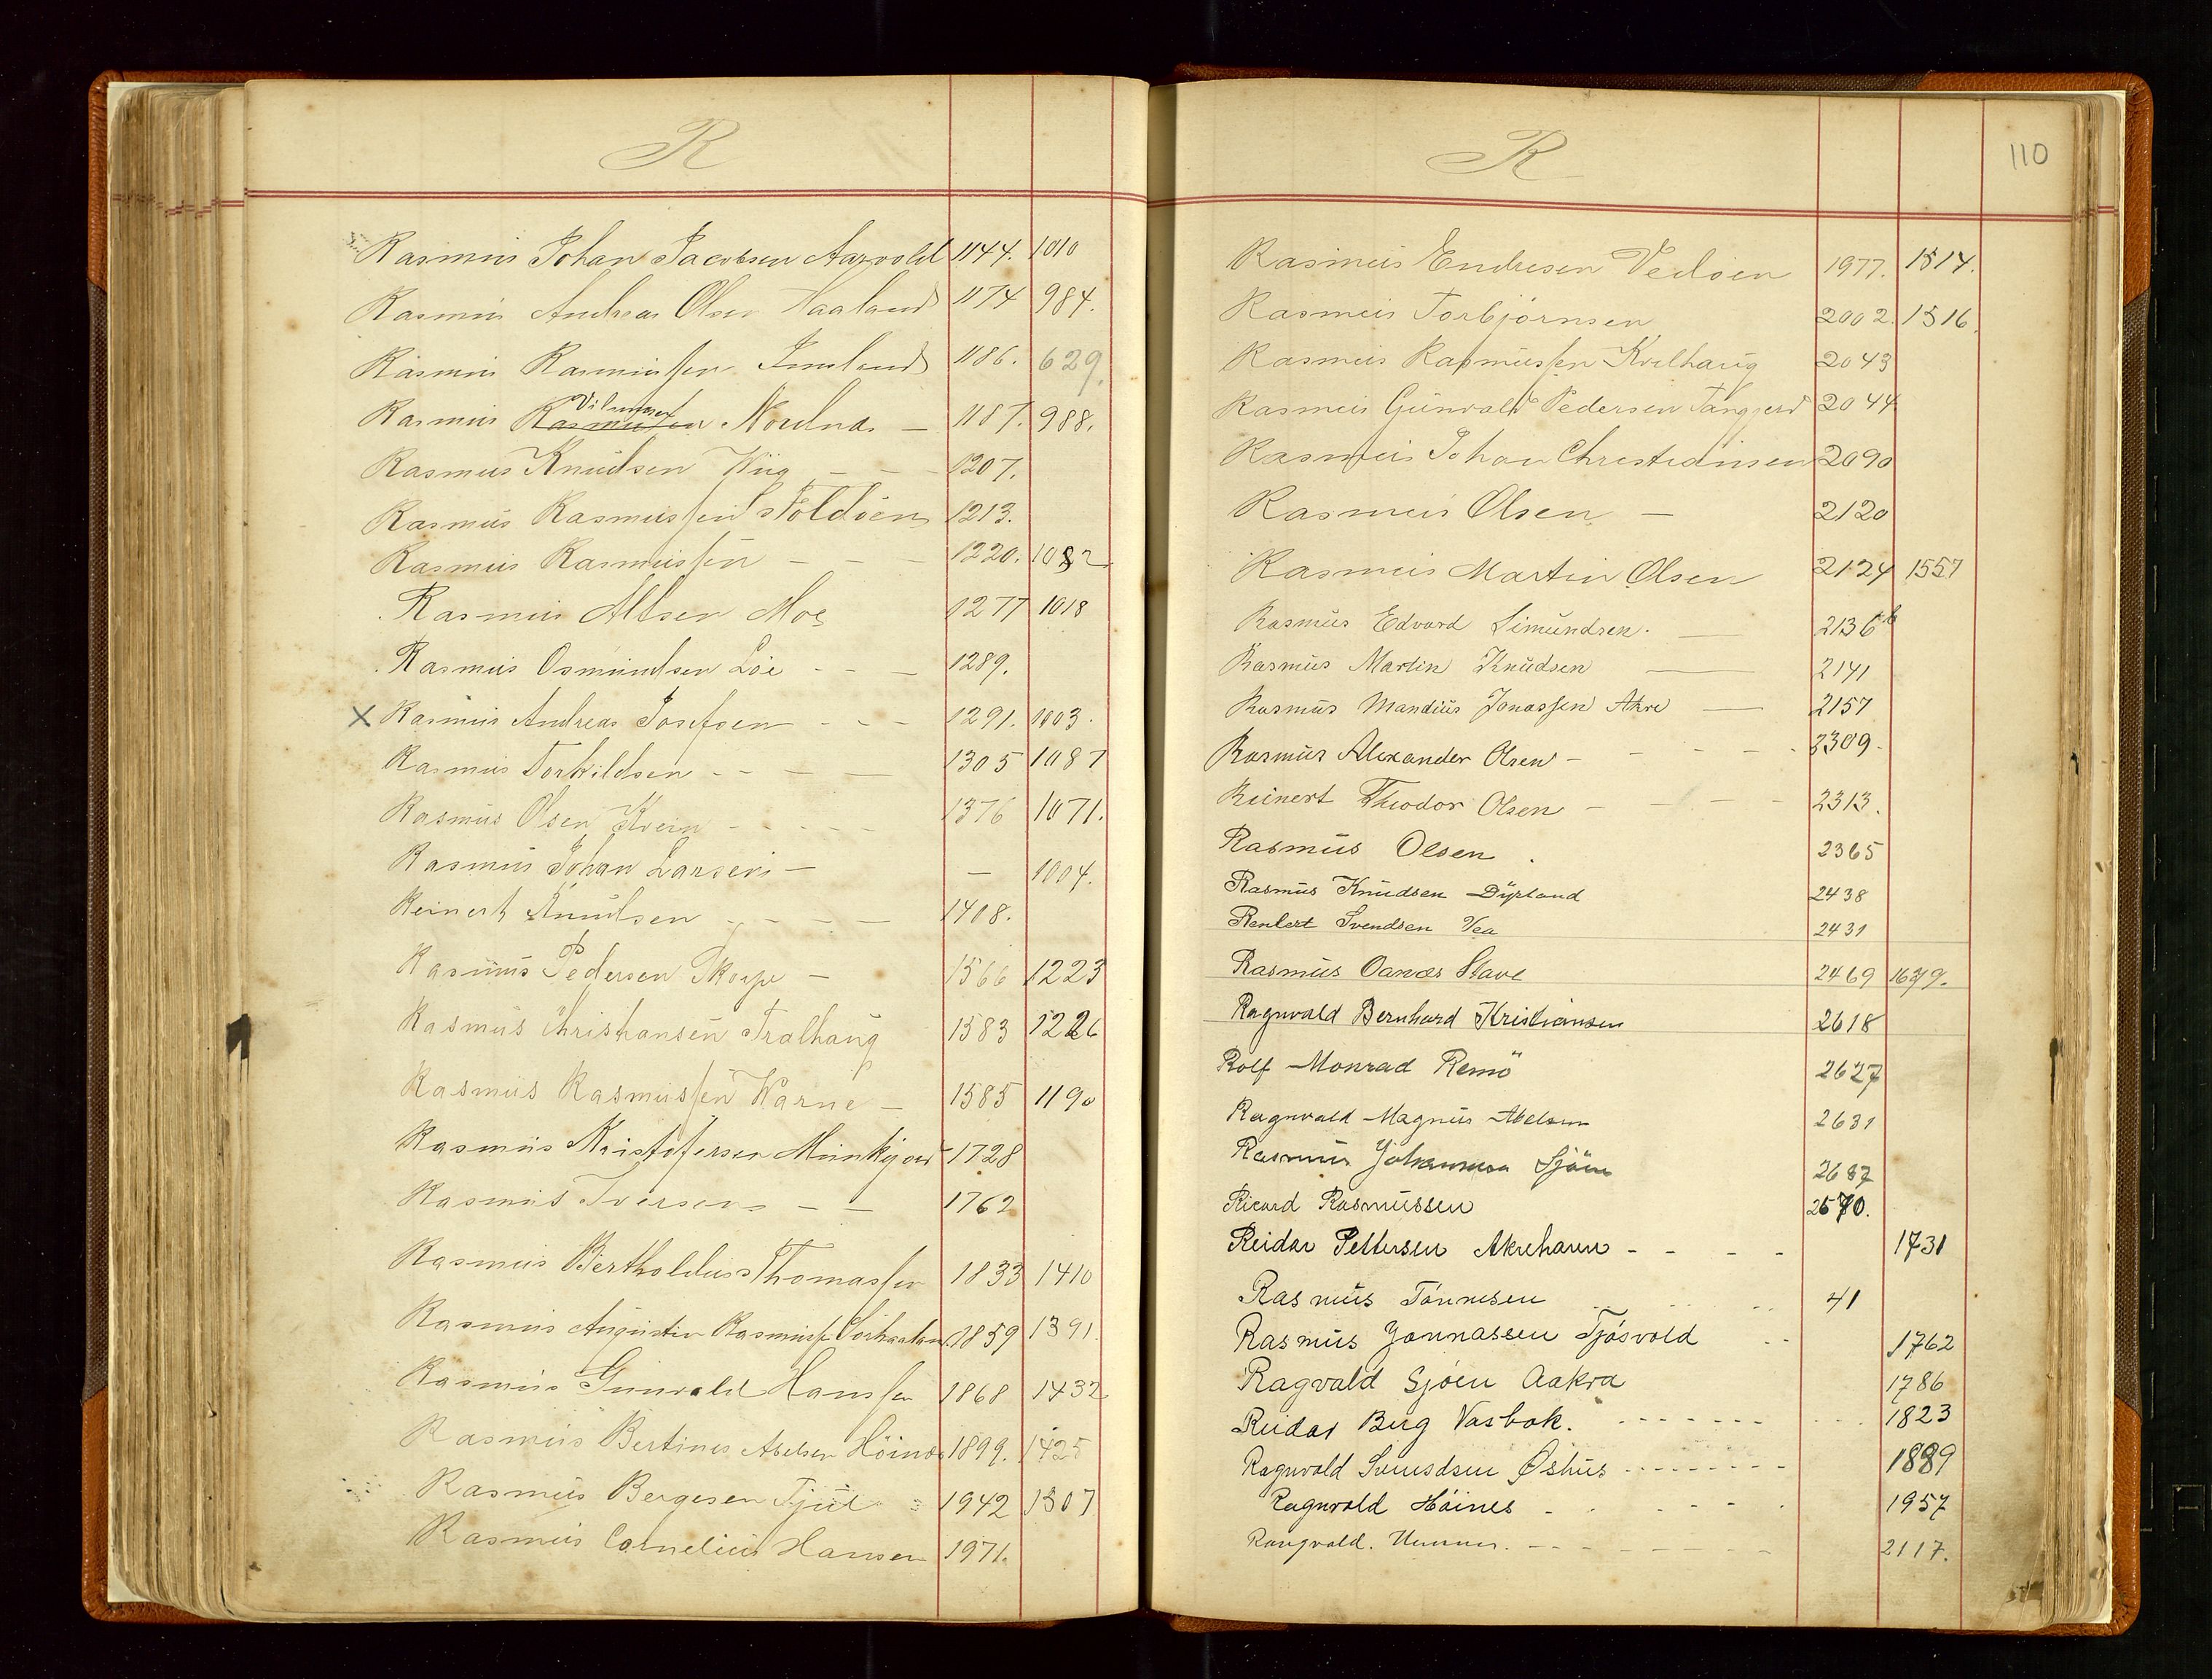 R
Rasmus Johan Jacobsen Aarvold 1144. 1010
Rasmus Andreas Olsen Haaland 1174 984.
Rasmus Rasmussen Imsland 1186. 629.
Vilumsen
Rasmus Rasmussen Nordnæs — 1187. 988.
Rasmus Knudsen Wiig — — — 1207.
Rasmus Rasmussen Toldöen 1213.
Rasmus Rasmussen — — — 1220. 1082
Rasmus Altsen Moe 1277 1018
Rasmus Osmundsen Löe - - — 1289.
X Rasmus Andreas Josefsen - - - 1291. 1003.
Rasmus Torkildsen - - — — 1305 1087
Rasmus Olsen Kvein - - - - - 1376 1071.
Rasmus Johan Larsen — — 1004.
Reinert Knudsen - - — — 1408.
Rasmus Pedersen Skorpe — 1566 1223
Rasmus Christiansen Tralhaug 1583 1226
Rasmus Rasmussen Varne — 1585 1190
Rasmus Kristofersen Munkejord 1728
Rasmus Iversen — — 1762
Rasmus Bertholdus Thomassen 1833 1410
Rasmus Augustin Rasmuss. Sörhaaland 1859 1391.
Rasmus Gunvald Hanssen 1868 1432
Rasmus Bertines Abelsen Höines 1899. 1425
Rasmus Bergesen Tjul 1942 1307
Rasmus Cornelius Hansen 1971.
R
110
Rasmus Endresen Vedöen 1977. 1514.
Rasmus Torbjörnsen 2002. 1516.
Rasmus Rasmussen Kvelhaug 2043
Rasmus Gunvald Pedersen Tangjerd 2044
Rasmus Johan Christiansen 2090
Rasmus Olsen — 2120
Rasmus Martin Olsen 2124 1557
Rasmus Edvard Simundsen. — 2136 b
Rasmus Martin Knudsen — 2141
Rasmus Mandius Jonassen Akre — 2157
Rasmus Alexander Olsen - - - - - 2309.
Reinert Theodor Olsen - - - - 2313.
Rasmus Olsen . 2365
Rasmus Knudsen Dyrland 2438
Renlert Svendsen Vea 2431
Rasmus Oanæs Stave 2469 1679.
Ragnvald Bernhard Kristiansen 2618
Rolf Monrad Remö 2627
Ragnvald Magnus Abelsen 2631
Rasmus Johannesen Sjöen 2687
Ricard Rasmussen 2570.
Reidar Pettersen Akrehavn - - - - 1731
Rasmus Tönnesen 41
Rasmus Jonnassen Tjösvold 1762
Ragvald Sjöen Aakra 1786
Reidar Berg Vasbok. 1823
Ragnvald Svendsen Øshus 1889
Ragnvald Höines 1957
Rangvald. 2117.